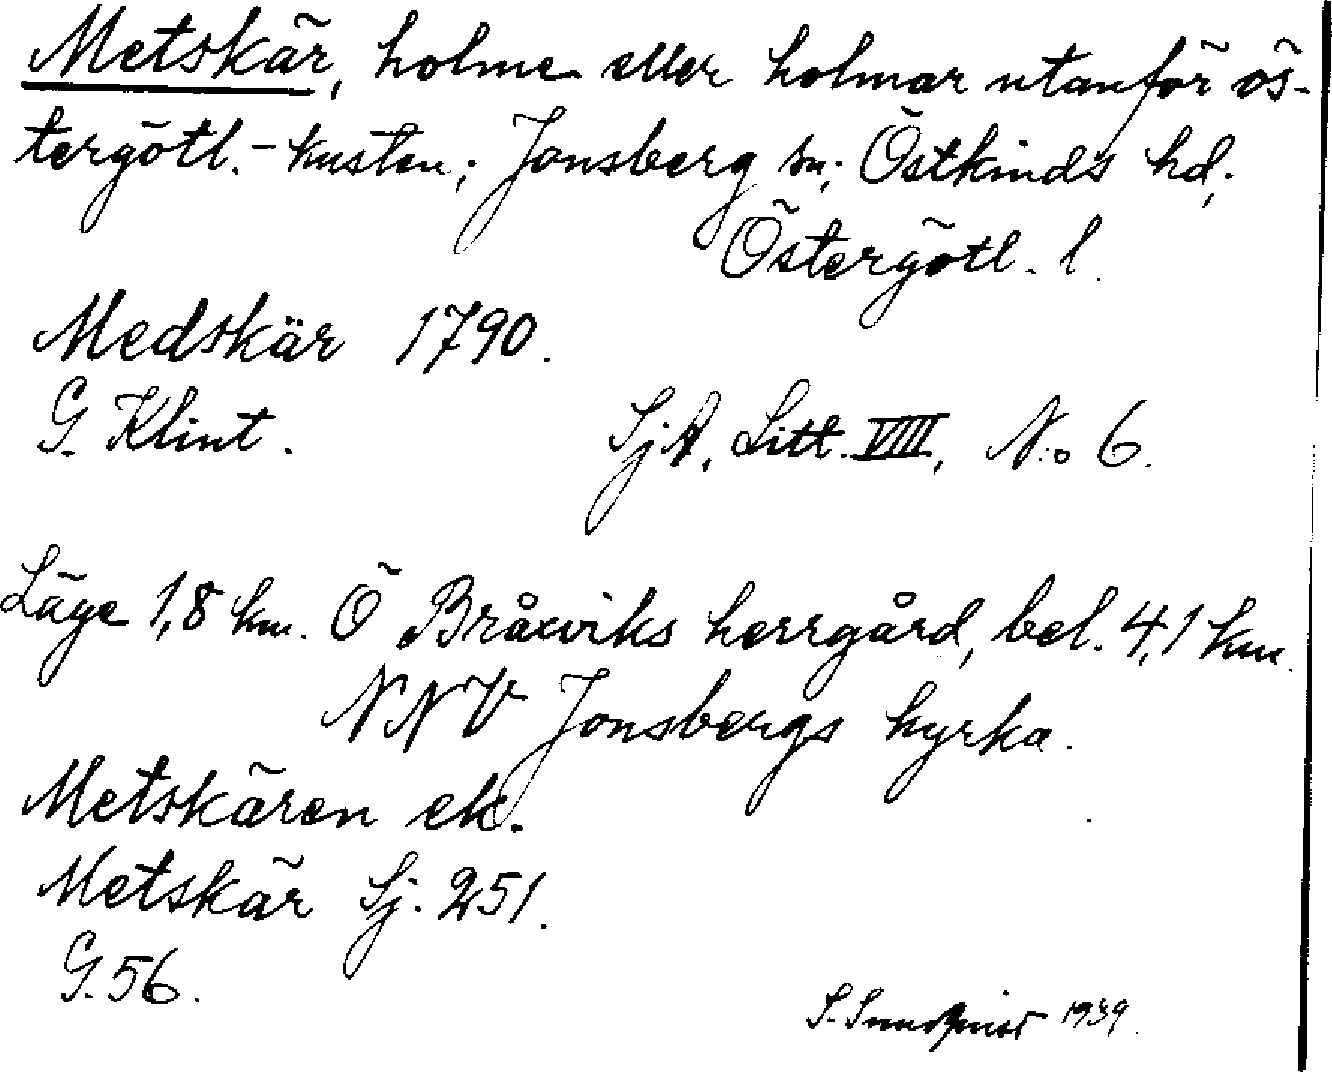 Metskär, holme eller holmar utanför ös-
tergötl.-kusten; Jonsberg sn; Östkinds hd;
Östergötl. l.
Medskär 1790.
G. Klint. SjA, Litt. VIII, N:o 6.
Läge 1,8 km. Ö Bråxviks herrgård, bel. 4,1 km.
NNV Jonsbergs kyrka.
Metskären ek.
Metskär Sj. 251.
G. 56.
S. Sundqvist 1939.